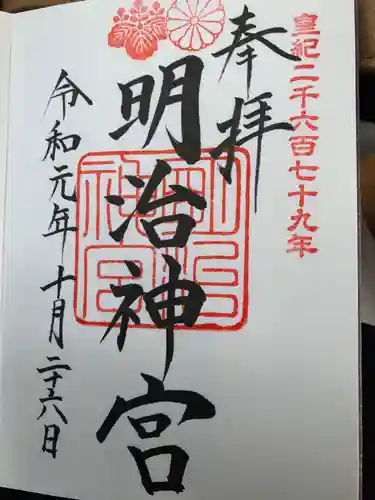 皇紀二千六百七十九年
奉拝
明治神宮
明治神宮
令和元年 十月 二十六日